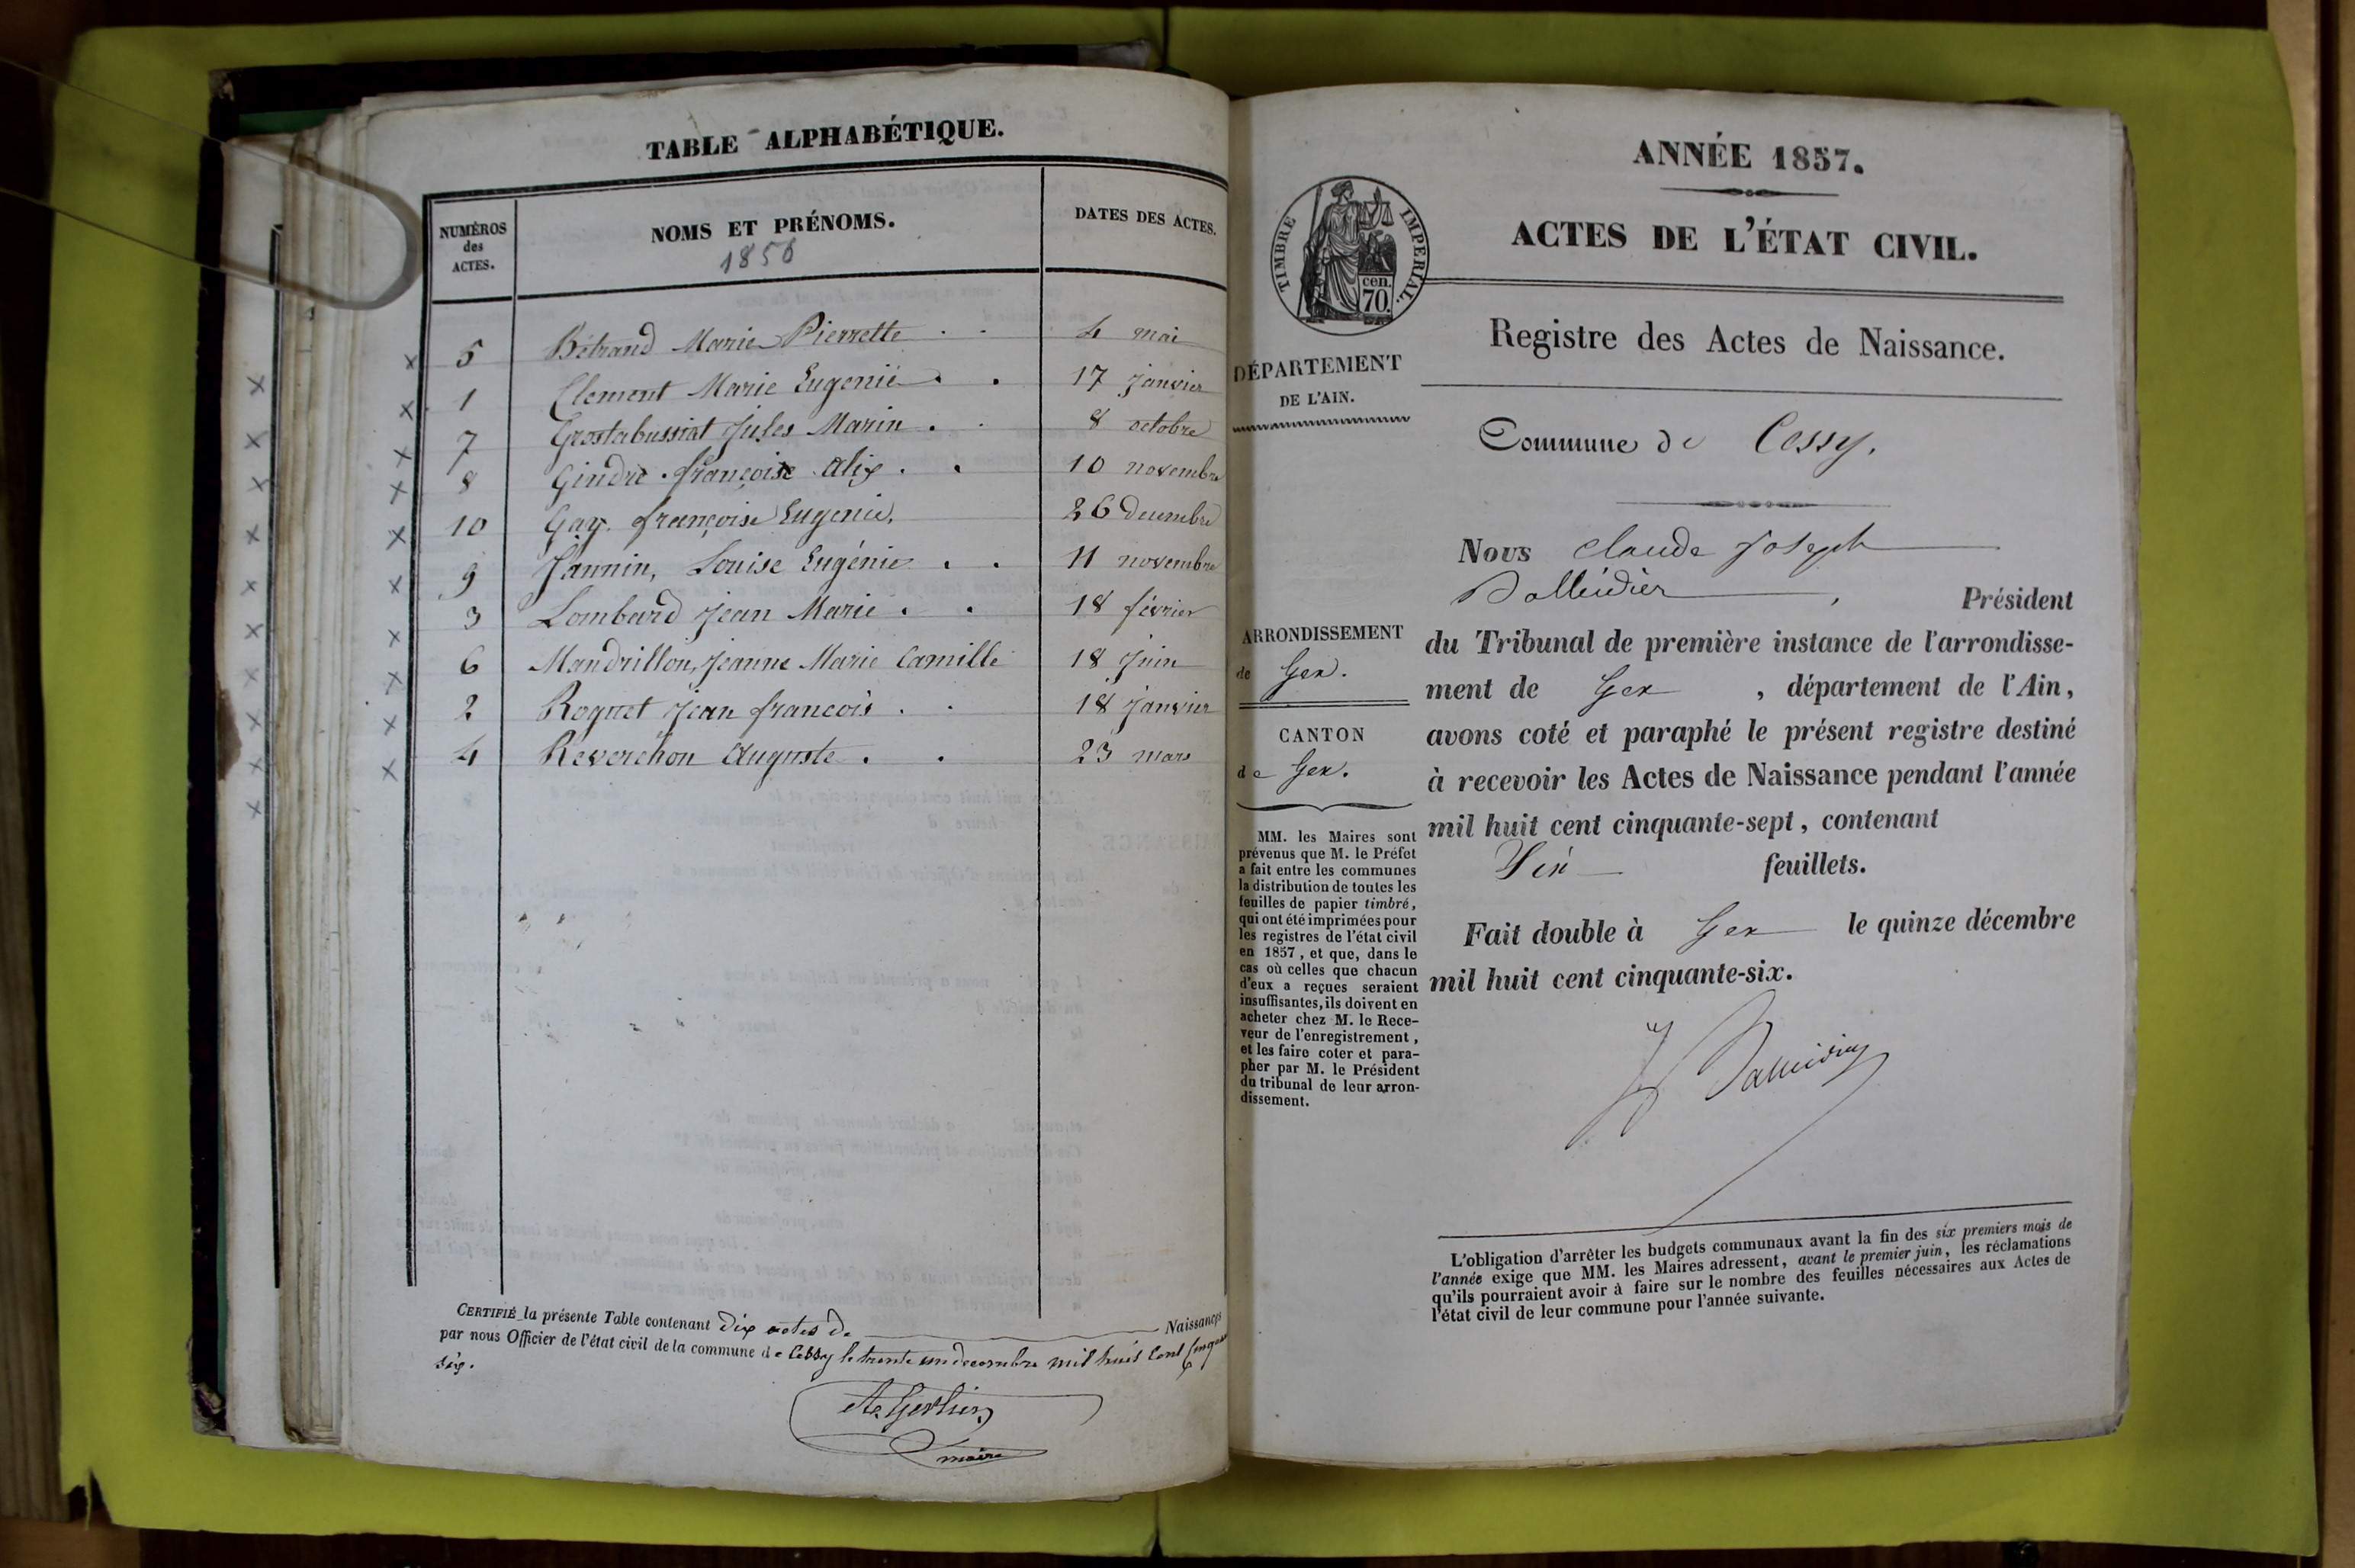 TABLE ALPHABÉTIQUE.
NUMÉROS des ACTES. NOMS ET PRÉNOMS. 1856 DATES DES ACTES.
5 Bétrand Marie Pierrette 4 mai
1 Clement Marie Eugenie 17 janvier
7 Grostabussiat Jules Marin 8 octobre
8 Gindre françoise alix 10 novembre
10 Gay françoise Eugenie, 26 decembre
9 Jannin, Louise Eugénie 11 novembre
3 Lombard Jean Marie 18 février
6 Mandrillon, Jeanne Marie Camille 18 Juin
2 Roquet Jean francois 18 Janvier
4 Reverchon Auguste 23 mars
CERTIFIÉ la présente Table contenant dix actes de Naissances
par nous Officier de l'état civil de la commune de Cessy le trente un decembre mil huit Cent Cinquante
six.
maire
ANNÉE 1857.
ACTES DE L'ÉTAT CIVIL.
TIMBRE IMPERIAL.
cen.
70.
Registre des Actes de Naissance.
DÉPARTEMENT
DE L'AIN.
Commune de Cessy.
Nous Claude Joseph
, Président
du Tribunal de première instance de l'arrondisse-
ment de Gex , département de l'Ain,
avons coté et paraphé le présent registre destiné
à recevoir les Actes de Naissance pendant l'année
mil huit cent cinquante-sept, contenant
feuillets.
Fait double à Gex le quinze décembre
mil huit cent cinquante-six.
ARRONDISSEMENT
de Gex.
CANTON
de Gex.
MM. les Maires sont
prévenus que M. le Préfet
a fait entre les communes
la distribution de toutes les
feuilles de papier timbré,
qui ont été imprimées pour
les registres de l'état civil
en 1857, et que, dans le
cas où celles que chacun
d'eux a reçues seraient
insuffisantes, ils doivent en
acheter chez M. le Rece-
veur de l'enregistrement,
et les faire coter et para-
pher par M. le Président
du tribunal de leur arron-
dissement.
L'obligation d'arrêter les budgets communaux avant la fin des six premiers mois de
l'année exige que MM. les Maires adressent, avant le premier juin, les réclamations
qu'ils pourraient avoir à faire sur le nombre des feuilles nécessaires aux Actes de
l'état civil de leur commune pour l'année suivante.